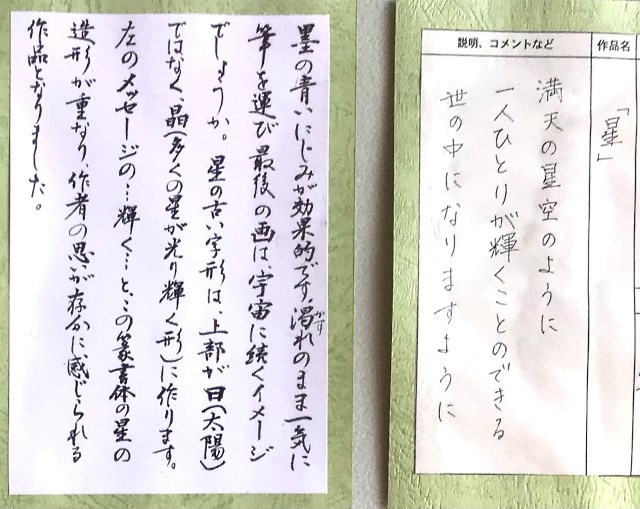 墨の青いにじみが効果的です。渇れのまま一気に
かす
筆を運び最後の画は、宇宙に続くイメージ
でしょうか。星の古い字形は、上部が日(太陽)
ではなく、晶(多くの星が光り輝く形)に作ります。
左のメッセージの…輝く…と、この篆書体の星の
造形が重なり、作者の思いが存分に感じられる
作品となりました。
作品名
「星」
説明、コメントなど
満天の星空のように
一人ひとりが輝くことのできる
世の中になりますように